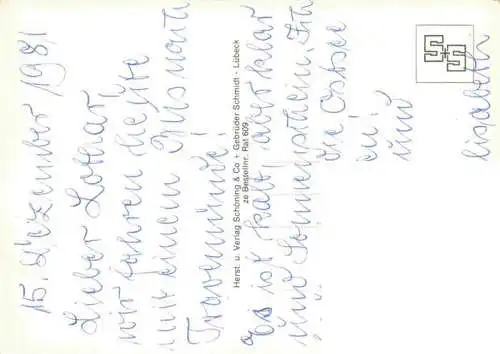 15. Dezember 1981
Lieber Lothar!
wir fahren heute
mit einem
Travemünde!
Es ist kalt, aber klar
und Sonnenschein.
die Ostsee
und
Elisabeth
Herst. u. Verlag Schöning & Co + Gebrüder Schmidt - Lübeck
ze Bestellnr. Rat 609